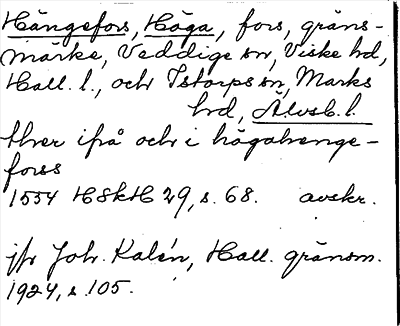 Hängefors, Höga, fors, gräns-
märke, Veddige sn, Viske hd,
Hall. l., och Istorps sn, Marks
hd, Älvsb. l.
thær ifrå och i högahenge-
forss
1554 HSkH 29, s. 68. avskr.
jfr Joh. Kalén, Hall. gränsm.
1924, s. 105.